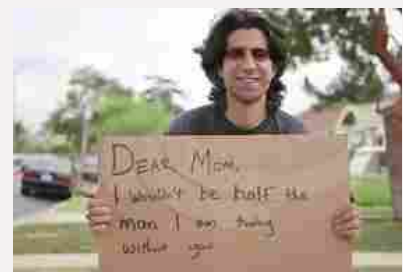 DEAR MOM,
I wouldn't be half the
man I am today
without you